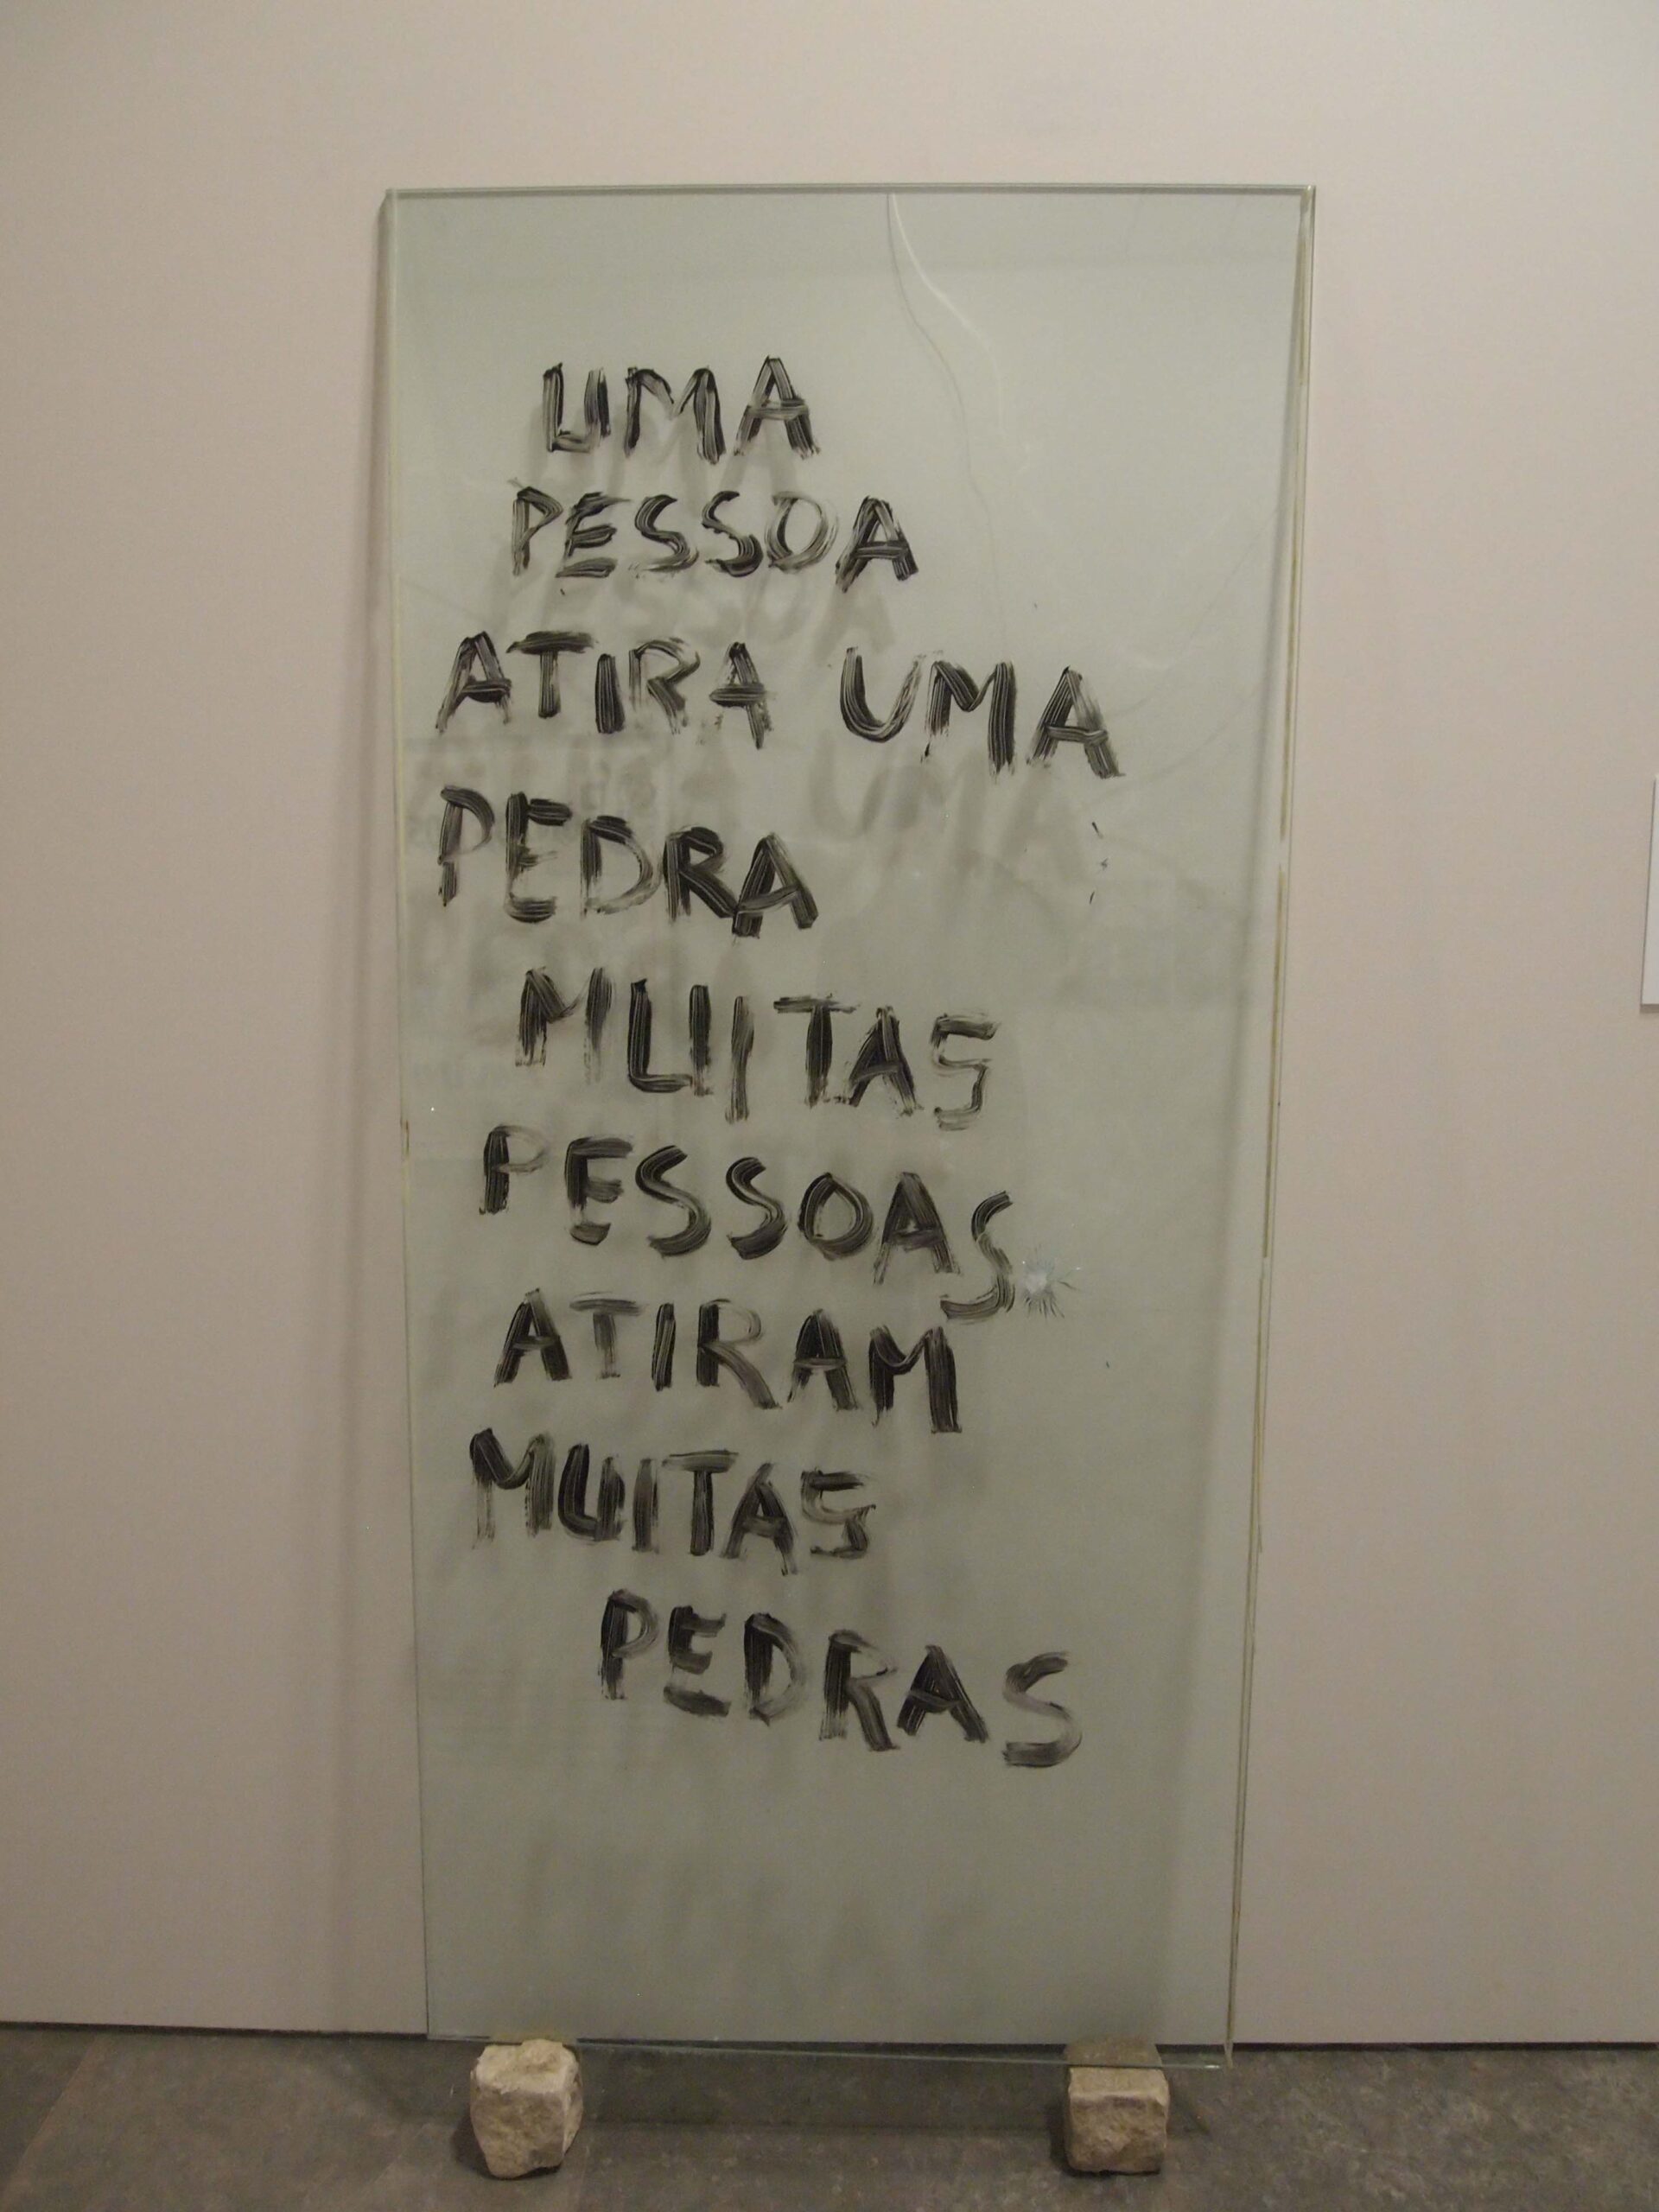 UMA
PESSOA
ATIRA UMA
PEDRA
MUITAS
PESSOAS
ATIRAM
MUITAS
PEDRAS